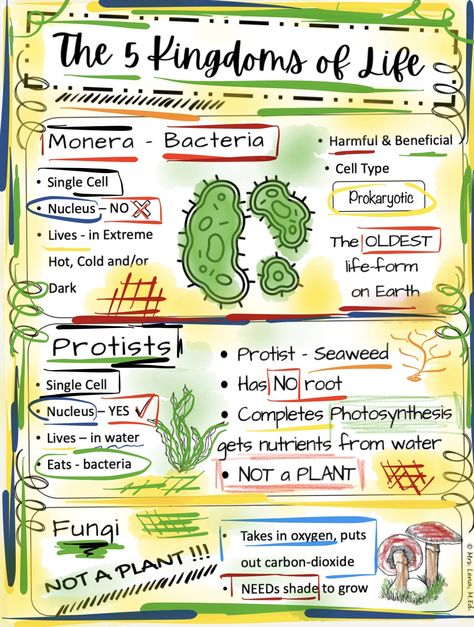 The 5 Kingdoms of Life
Monera - Bacteria
• Single Cell
• Nucleus – NO
• Lives - in Extreme
Hot, Cold and/or
Dark
• Harmful & Beneficial
• Cell Type
Prokaryotic
The OLDEST
life-form
on Earth
Protists
• Single Cell
• Nucleus – YES
• Lives – in water
• Eats - bacteria
• Protist - Seaweed
• Has NO root
• Completes Photosynthesis
gets nutrients from water
• NOT a PLANT
Fungi
NOT A PLANT !!!
• Takes in oxygen, puts
out carbon-dioxide
• NEEDs shade to grow
© Mrs. Lena, M.Ed.